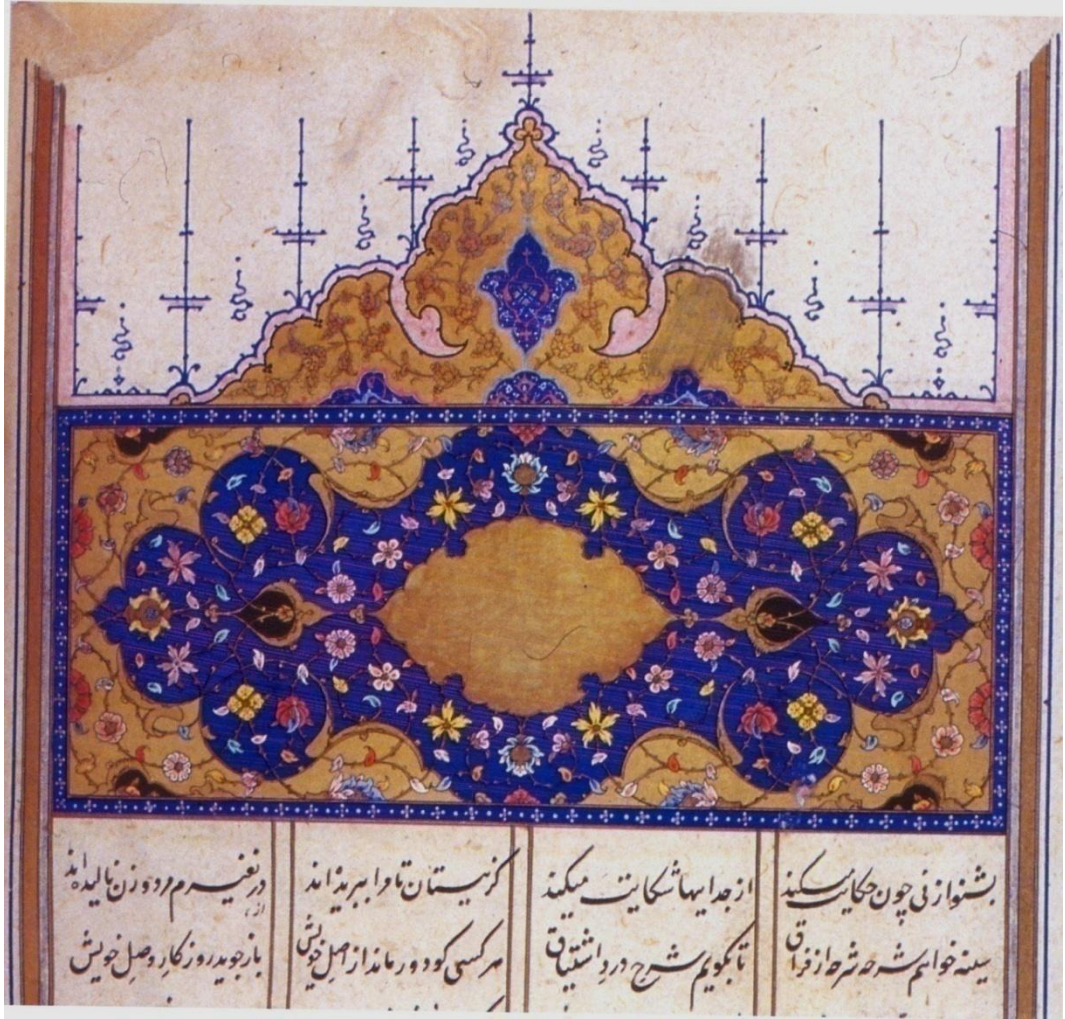 بشنو از نی چون حکایت میکند از جداییها شکایت میکند کز نیستان تا مرا ببریده اند در نفیرم مرد و زن نالیده اند
از
سینه خواهم شرحه شرحه از فراق تا بگویم شرح درد اشتیاق هر کسی کو دور ماند از اصل خویش باز جوید روزگار وصل خویش